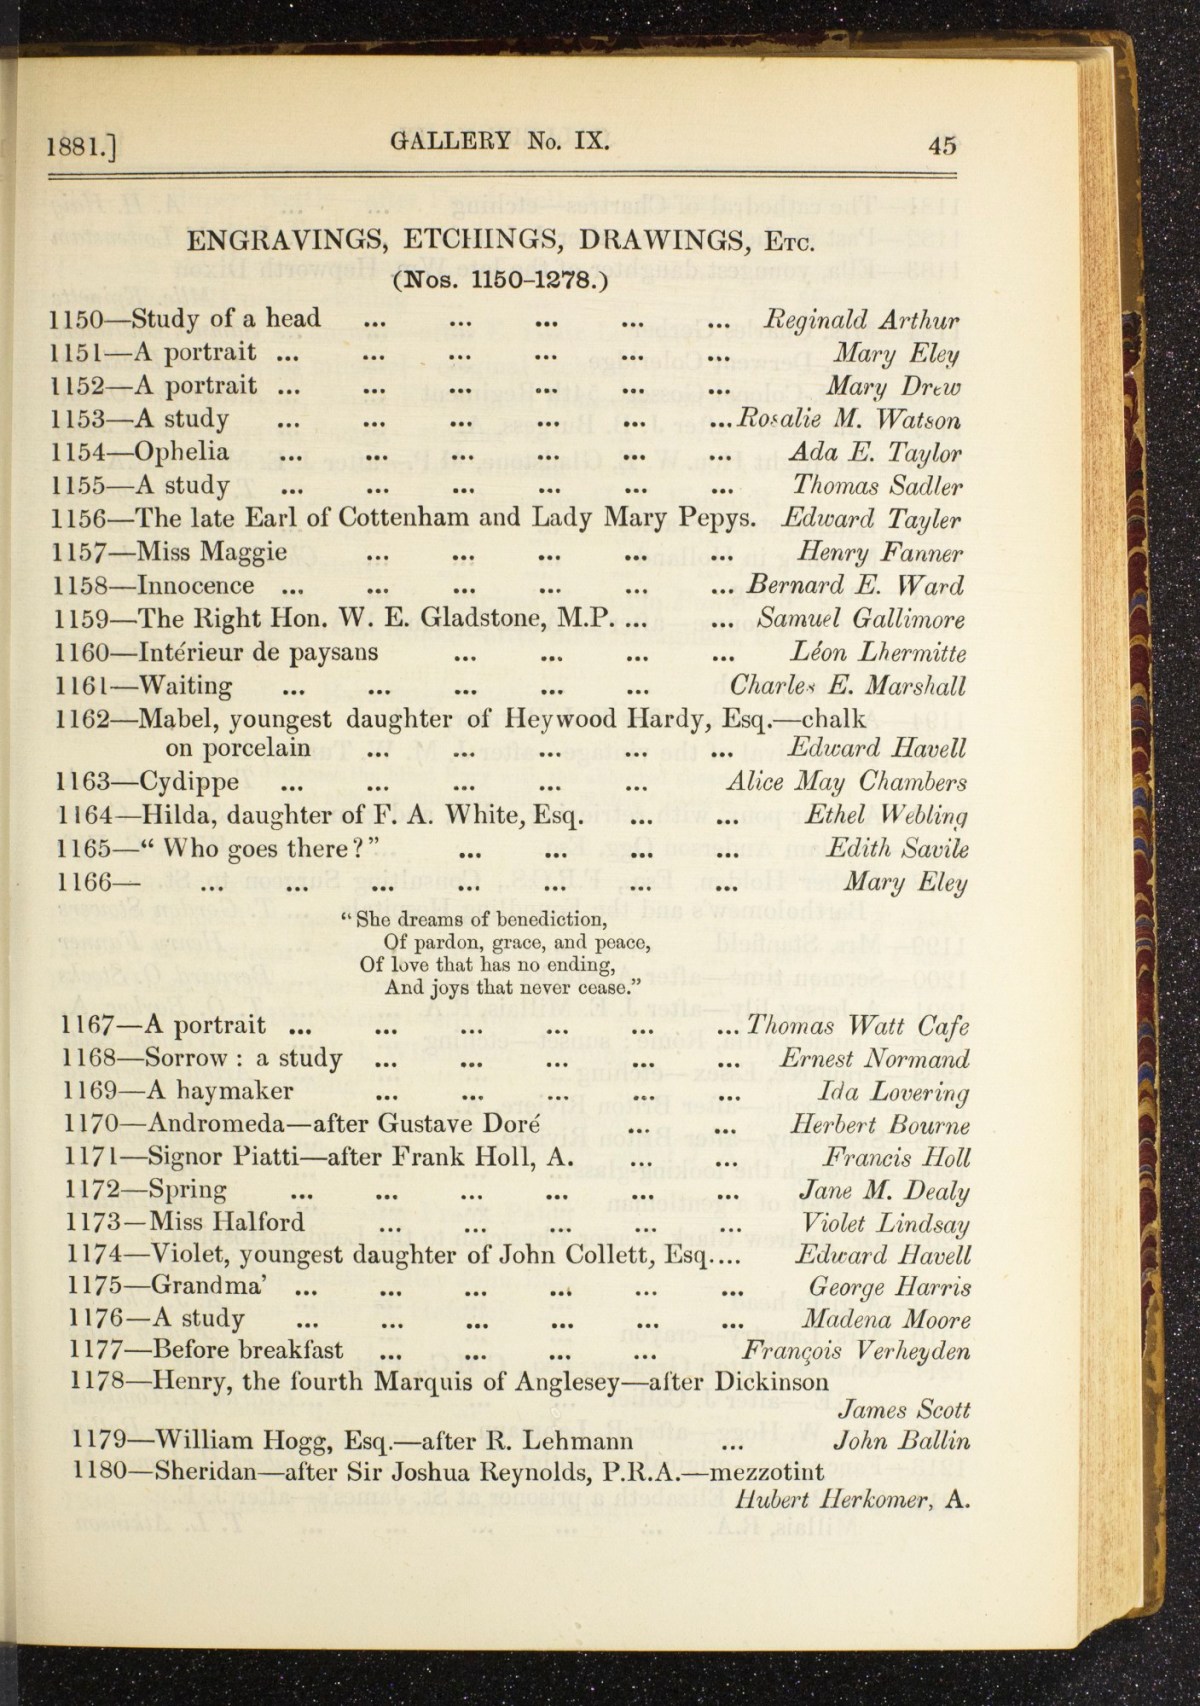 1881.] GALLERY No. IX. 45
ENGRAVINGS, ETCHINGS, DRAWINGS, Etc.
(Nos. 1150–1278.)
1150—Study of a head ... ... ... ... ... Reginald Arthur
1151—A portrait ... ... ... ... ... ... Mary Eley
1152—A portrait ... ... ... ... ... ... Mary Drew
1153—A study ... ... ... ... ... ... Rosalie M. Watson
1154—Ophelia ... ... ... ... ... ... Ada E. Taylor
1155—A study ... ... ... ... ... ... Thomas Sadler
1156—The late Earl of Cottenham and Lady Mary Pepys. Edward Tayler
1157—Miss Maggie ... ... ... ... ... Henry Fanner
1158—Innocence ... ... ... ... ... ... Bernard E. Ward
1159—The Right Hon. W. E. Gladstone, M.P. ... ... Samuel Gallimore
1160—Intérieur de paysans ... ... ... ... Léon Lhermitte
1161—Waiting ... ... ... ... ... Charles E. Marshall
1162—Mabel, youngest daughter of Heywood Hardy, Esq.—chalk
on porcelain ... ... ... ... ... Edward Havell
1163—Cydippe ... ... ... ... ... Alice May Chambers
1164—Hilda, daughter of F. A. White, Esq. ... ... Ethel Webling
1165—“ Who goes there?” ... ... ... ... Edith Savile
1166— ... ... ... ... ... ... ... Mary Eley
“ She dreams of benediction,
Of pardon, grace, and peace,
Of love that has no ending,
And joys that never cease.”
1167—A portrait ... ... ... ... ... ... Thomas Watt Cafe
1168—Sorrow : a study ... ... ... ... ... Ernest Normand
1169—A haymaker ... ... ... ... ... Ida Lovering
1170—Andromeda—after Gustave Doré ... ... Herbert Bourne
1171—Signor Piatti—after Frank Holl, A. ... ... Francis Holl
1172—Spring ... ... ... ... ... ... Jane M. Dealy
1173—Miss Halford ... ... ... ... ... Violet Lindsay
1174—Violet, youngest daughter of John Collett, Esq.... Edward Havell
1175—Grandma’ ... ... ... ... ... ... George Harris
1176—A study ... ... ... ... ... ... Madena Moore
1177—Before breakfast ... ... ... ... François Verheyden
1178—Henry, the fourth Marquis of Anglesey—after Dickinson
James Scott
1179—William Hogg, Esq.—after R. Lehmann ... John Ballin
1180—Sheridan—after Sir Joshua Reynolds, P.R.A.—mezzotint
Hubert Herkomer, A.